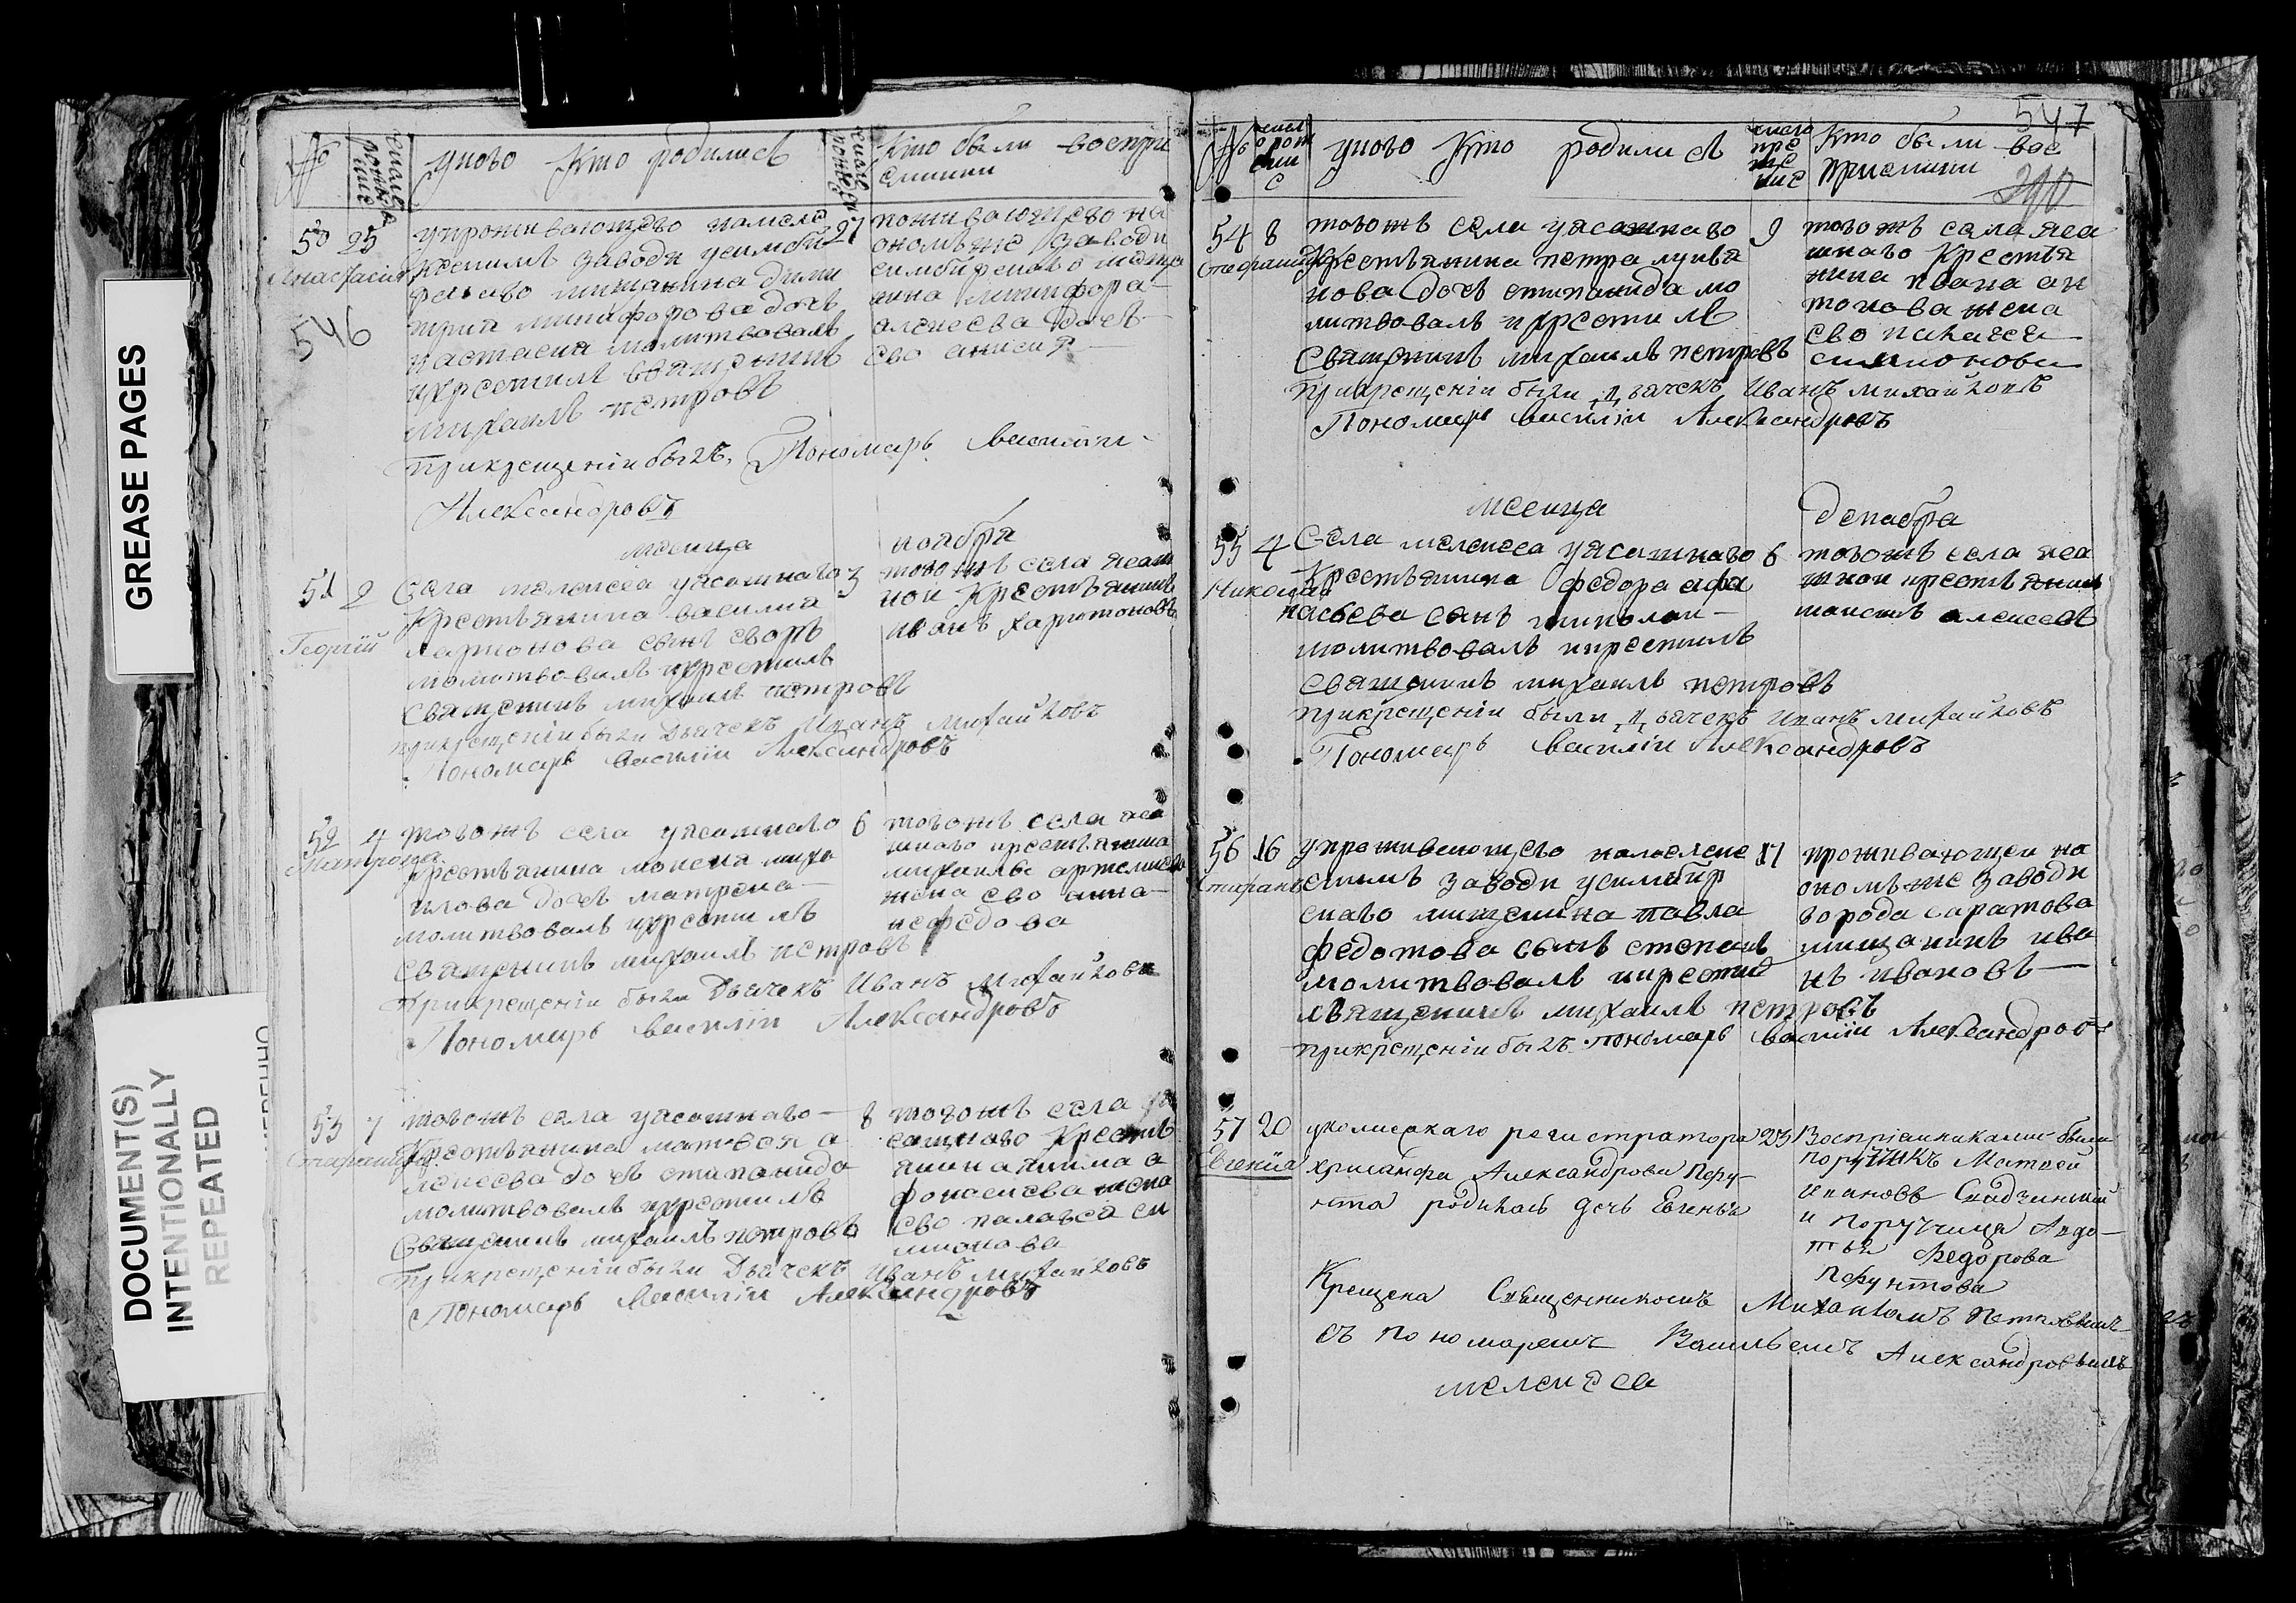 GREASE PAGES
DOCUMENT(S)
INTENTIONALLY
REPEATED
№
число рождение
у ково Кто родилисѣ
Кто были воспри
емники
50 25
Анастасия
546
у проживающево на меле
кескимъ заводи у симби
рскаво мищанина дими
трия микифорова дочь
настасия молитвовалъ
икрестилъ священникъ
михаилъ петровъ
27
поживающево на
ономъ же заводи
симбирскаво
микифора
алексеева дочь
ево анисия
при крещении былъ Пономарь василии
Александровъ
месица ноября
51 2
Георгий
Села мелекеса уясашнаво
Крестьянина василия
ларионова сынъ егоръ
молитвовалъ икрестилъ
священникъ михаилъ петровъ
3
товожъ села ясаш
нои Крестьянинъ
иванъ харитоновъ
при крещении были Дьячекъ Иванъ михаиловъ
Пономарь василии Александровъ
52 4
Матрона
товожъ села уясашнаво
крестьянина моисея миха
илова дочь матрена
молитвовалъ икрестилъ
священникъ михаилъ петровъ
6
товожъ села яса
шнаво крестьянина
михаилы артемиева
жена ево анна
нефедова
При крещении были Дьячекъ Иванъ Михаиловъ
Пономарь василии Александровъ
53 7
Стефанида
товожъ села уясашнаво
Крестьянина матвея а
лексеева дочь стипанида
молитвовалъ икрестилъ
Священникъ михаилъ петровъ
8
товожъ села я
сашнаво Кресть
янина якима а
фонасиева жена
ево палагея си
мионова
При крещении были Дьячекъ Иванъ михаиловъ
Пономарь Василии Александровъ
547
№
у ково Кто родилисѣ
Кто были вос
приемники
54 8
Стефанида
товожъ села уясашнаво
Крестьянина петра лукья
нова дочь стипанида мо
литвовалъ икрестилъ
Священникъ михаилъ петровъ
9
товожъ села яса
шнаво Крестья
нина ивана ан
тонова жена
ево
симионова
При крещении были Дьячекъ Иванъ михаиловъ
Пономарь василии Александровъ
месица Декабря
55 4
Николай
Села мелекеса уясашнаво
Крестьянина федора афа
насьева сынъ николаи
молитвовалъ икрестилъ
Священникъ михаилъ петровъ
6
товожъ села яса
шнои крестьянинъ
моисеи алексеевъ
при крещении были Дьячекъ Иванъ михаиловъ
Пономарь василии Александровъ
56 16
Стефанъ
у проживающево на мелеке
скимъ заводи у симбир
скаво мищенина павла
федотова сынъ степанъ
молитвовалъ икрестил
священникъ михаилъ петровъ
17
проживающеи на
ономъ же заводи
города саратова
мищанинъ ива
нъ ивановъ
при крещении былъ пономарь василии Александровъ
57 20
Евгения
у колискаго регистратора
Хрисанфа Александрова Перу
нта родилась дочь Евгенья
23
Восприемниками были
порутчикъ Матвей
Ивановъ
и порутчица Авдо-
тья Федорова
Крещена Священникомъ Михаиломъ Петровымъ
съ пономаремъ Васильемъ Александровымъ
мелекеса